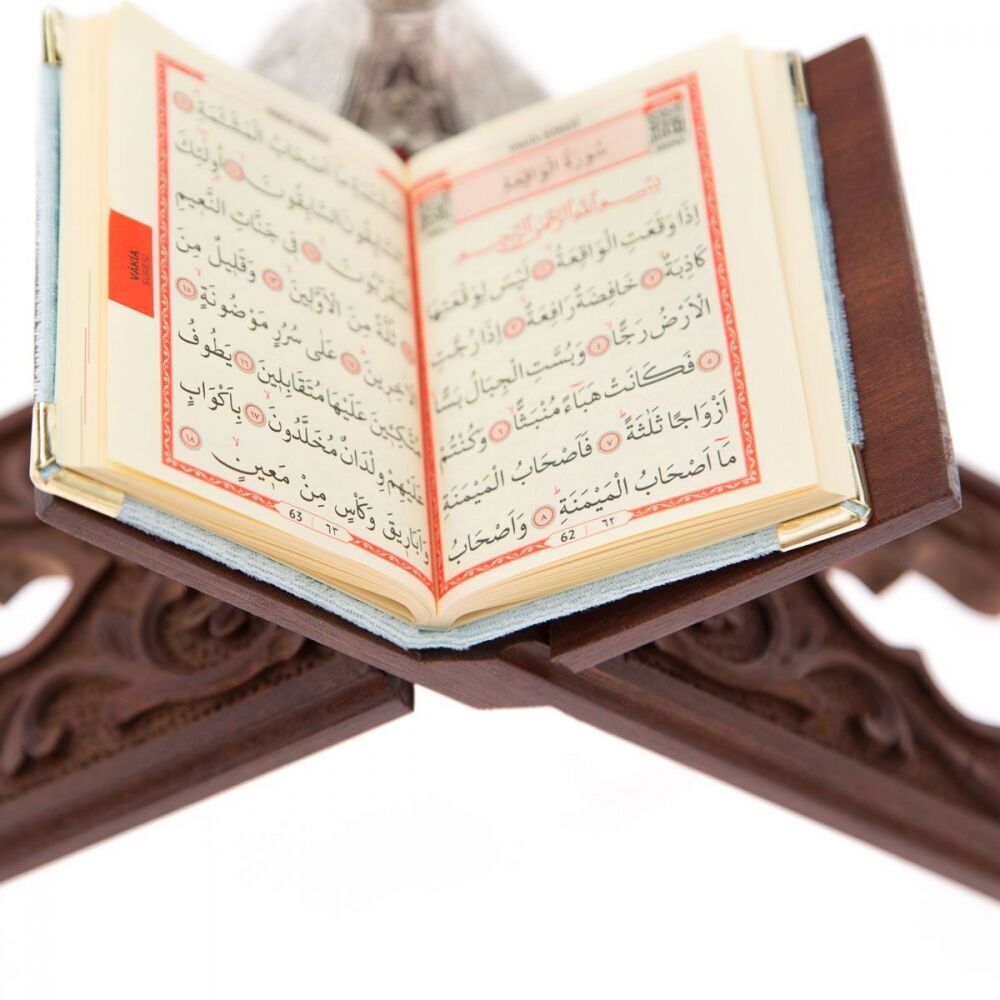 سُورَةُ الْوَاقِعَةِ
بِسْمِ اللّٰهِ الرَّحْمٰنِ الرَّحِيمِ
اِذَا وَقَعَتِ الْوَاقِعَةُ ۙ ١ لَيْسَ لِوَقْعَتِهَا
كَاذِبَةٌ ۢ ٢ خَافِضَةٌ رَافِعَةٌ ۙ ٣ اِذَا رُجَّتِ
الْاَرْضُ رَجًّا ۙ ٤ وَبُسَّتِ الْجِبَالُ بَسًّا
٥ فَكَانَتْ هَبَاءً مُنْبَثًّا ۙ ٦ وَكُنْتُمْ
اَزْوَاجًا ثَلٰثَةً ۜ ٧ فَاَصْحَابُ الْمَيْمَنَةِ
مَا اَصْحَابُ الْمَيْمَنَةِ ۜ ٨ وَاَصْحَابُ
62 | ٦٢
مَا اَصْحَابُ الْمَشْـَٔمَةِ ۜ ٩
السَّابِقُونَ ۙ ١٠ اُولٰٓئِكَ
١١ فِي جَنَّاتِ النَّعِيمِ
ثُلَّةٌ مِنَ الْاَوَّلِينَ ۙ ١٣ وَقَلِيلٌ مِنَ
الْاٰخِرِينَ ۜ ١٤ عَلٰى سُرُرٍ مَوْضُونَةٍ ۙ ١٥
مُتَّكِـِٔينَ عَلَيْهَا مُتَقَابِلِينَ ١٦ يَطُوفُ
عَلَيْهِمْ وِلْدَانٌ مُخَلَّدُونَ ۙ ١٧ بِاَكْوَابٍ
وَاَبَارِيقَ وَكَأْسٍ مِنْ مَعِينٍ ۙ ١٨
63 | ٦٣
VÂKIA
SURESİ